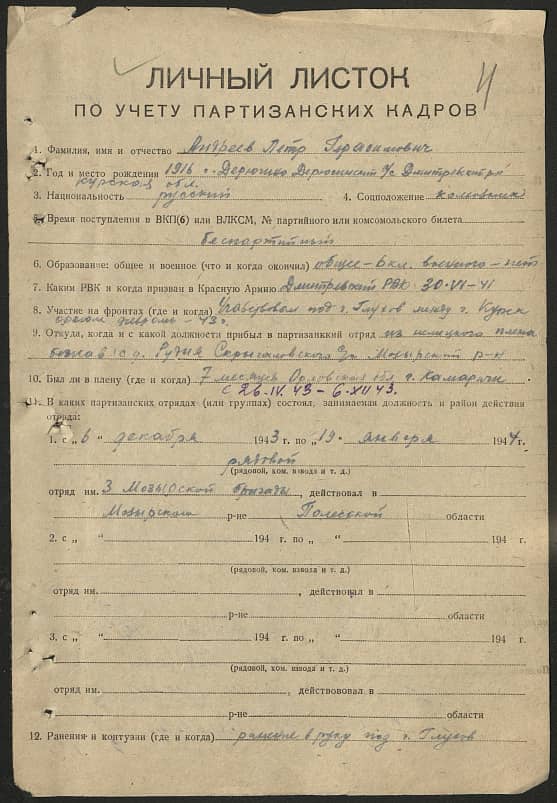 4
ЛИЧНЫЙ ЛИСТОК
ПО УЧЕТУ ПАРТИЗАНСКИХ КАДРОВ
1. Фамилия, имя и отчество Андреев Петр Герасимович
2. Год и место рождения 1916 г. Дерюгино Дерюгинский с/с Дмитревский р-н
Курской обл.
3. Национальность русский 4. Соцположение колхозник
5. Время поступления в ВКП(б) или ВЛКСМ, № партийного или комсомольского билета
беспартийный
6. Образование: общее и военное (что и когда окончил) общее-6 кл. военного-нет
7. Каким РВК и когда призван в Красную Армию Дмитревский РВК 30-VI-41
8. Участие на фронтах (где и когда) Участвовал под г. Глухов между г. Курск
орлом февраль-43 г.
9. Откуда, и когда и с какой должности прибыл в партизанский отряд из немецкого плена
бежав с д. Рудня Скрыгаловского с/с Мозырский р-н
10. Был ли в плену (где и когда) 7 месяцев Орловская обл г. Камаричи
с 26.IV.43-6.XII 43.
11. В каких партизанских отрядах (или группах) состоял, занимаемая должность и район действия
отряда:
1. с „6 " декабря 1943 г. по „19 " января 1944 г.
рядовой
(рядовой, ком. взвода и т. д.)
отряд им. 3 Мозырской бригады, действовал в
Мозырском р-не Полесской области
2. с „ " 194 г. по „ " 194 г.
(рядовой, ком. взвода и т. д.)
отряд им. , действовал в
р-не области
3. с „ " 194 г. по „ " 194 г.
(рядовой, ком. взвода и т. д.)
отряд им. , действововал в
р-не области
12. Ранения и контузии (где и когда) ранение в руку под г. Глухов